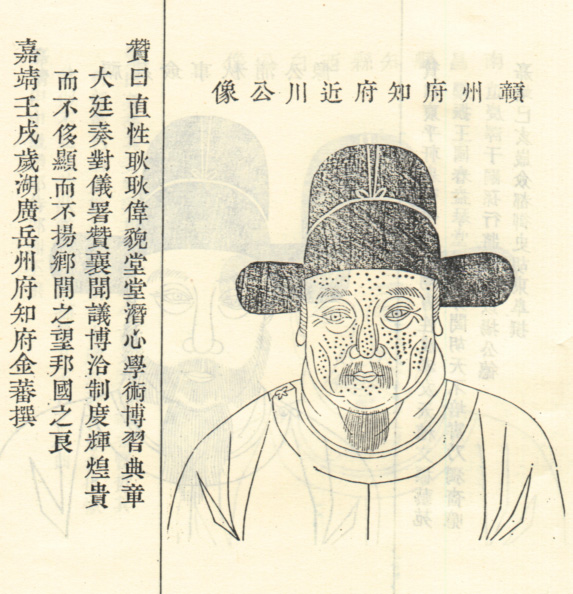 贛州府知府近川公像
贊曰直性耿耿偉貌堂堂潛心學術博習典章
大廷奏對儀署贊襄聞議博洽制度輝煌貴
而不侈顯而不揚鄉閭之望邦國之良
嘉靖壬戌歲湖廣岳州府知府金蕃撰